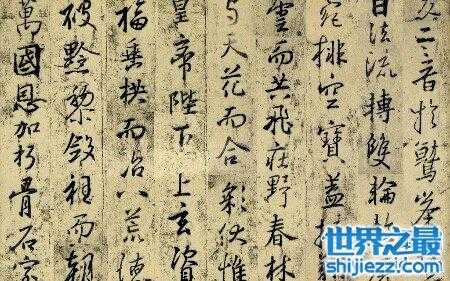 二音於鷲峯
日法流轉雙輪於
苑排空寶蓋接
雲而共飛莊野春林
与天花而合彩伏惟
皇帝陛下上玄資
福垂拱而治八荒德
被黔黎斂衽而朝
萬國恩加朽骨石室
世界之最
shijiezzl.com